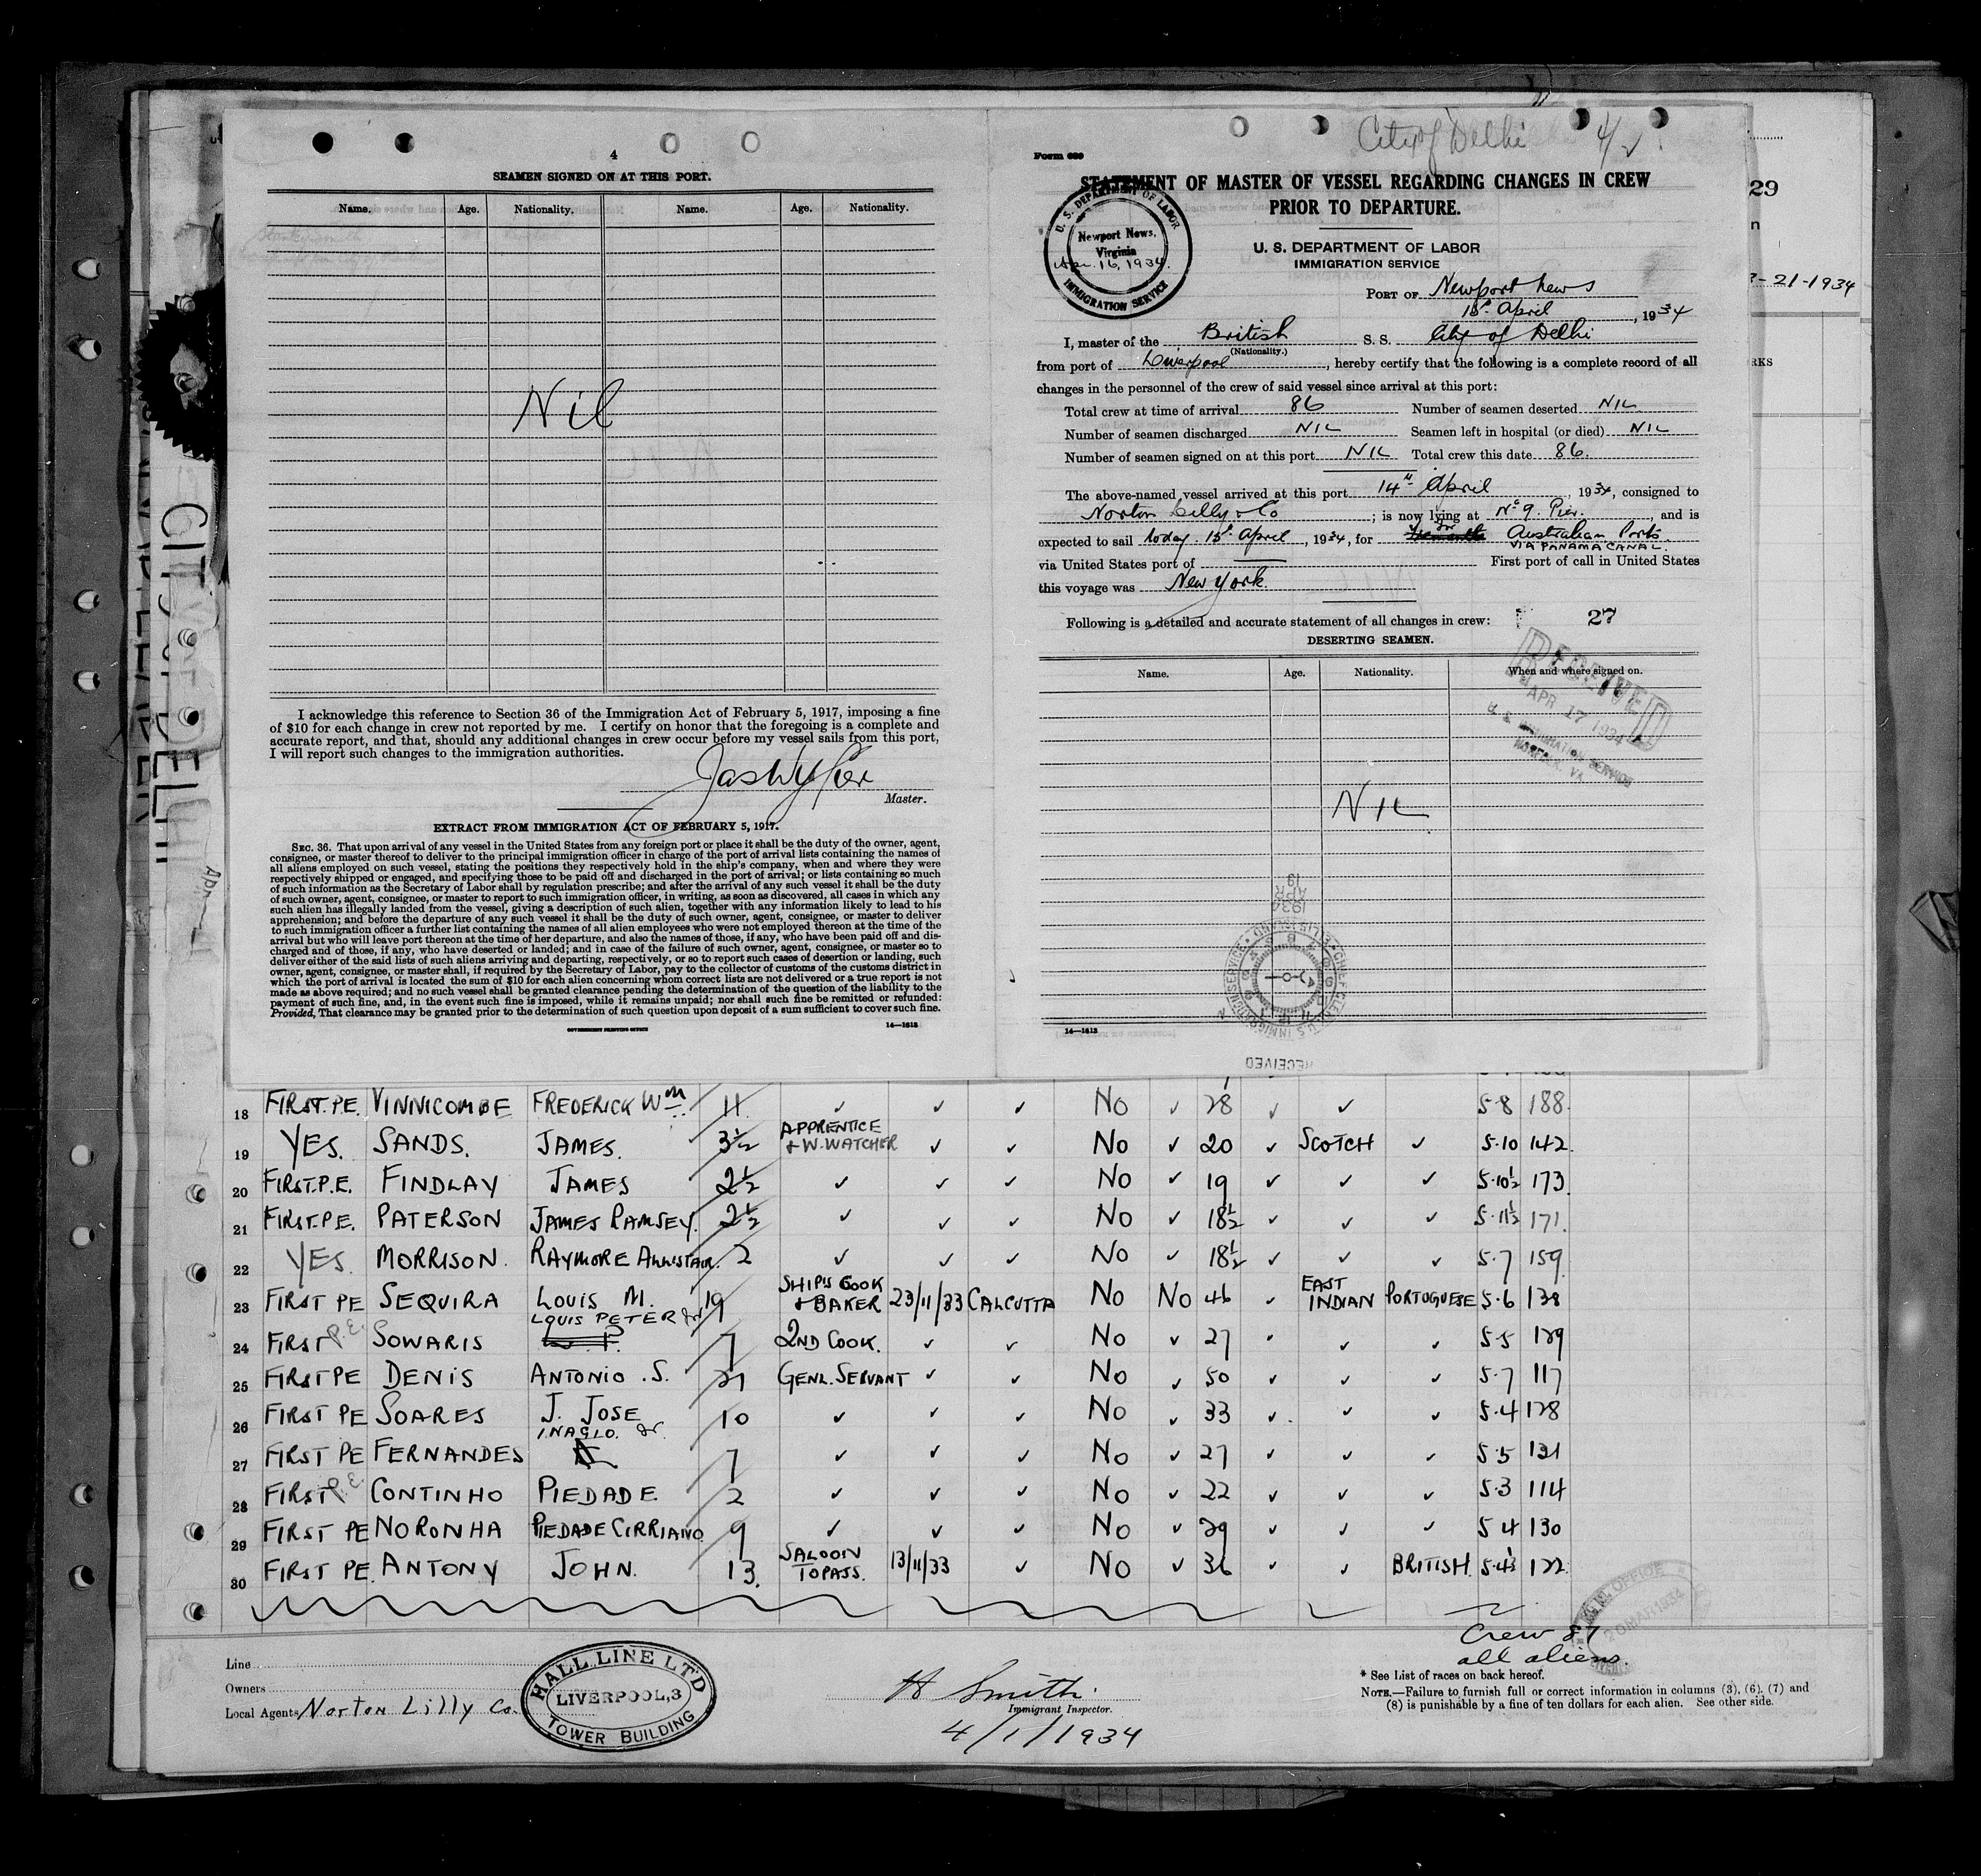 4
SEAMEN SIGNED ON AT THIS PORT.
Name. Age. Nationality. Name. Age. Nationality.
Nil
I acknowledge this reference to Section 36 of the Immigration Act of February 5, 1917, imposing a fine
of $10 for each change in crew not reported by me. I certify on honor that the foregoing is a complete and
accurate report, and that, should any additional changes in crew occur before my vessel sails from this port,
I will report such changes to the immigration authorities.
Master.
EXTRACT FROM IMMIGRATION ACT OF FEBRUARY 5, 1917.
SEC. 36. That upon arrival of any vessel in the United States from any foreign port or place it shall be the duty of the owner, agent,
consignee, or master thereof to deliver to the principal immigration officer in charge of the port of arrival lists containing the names of
all aliens employed on such vessel, stating the positions they respectively hold in the ship's company, when and where they were
respectively shipped or engaged, and specifying those to be paid off and discharged in the port of arrival; or lists containing so much
of such information as the Secretary of Labor shall by regulation prescribe; and after the arrival of any such vessel it shall be the duty
of such owner, agent, consignee, or master to report to such immigration officer, in writing, as soon as discovered, all cases in which any
such alien has illegally landed from the vessel, giving a description of such alien, together with any information likely to lead to his
apprehension; and before the departure of any such vessel it shall be the duty of such owner, agent, consignee, or master to deliver
to such immigration officer a further list containing the names of all alien employees who were not employed thereon at the time of the
arrival but who will leave port thereon at the time of her departure, and also the names of those, if any, who have been paid off and dis-
charged and of those, if any, who have deserted or landed; and in case of the failure of such owner, agent, consignee, or master so to
deliver either of the said lists of such aliens arriving and departing, respectively, or so to report such cases of desertion or landing, such
owner, agent, consignee, or master shall, if required by the Secretary of Labor, pay to the collector of customs of the customs district in
which the port of arrival is located the sum of $10 for each alien concerning whom correct lists are not delivered or a true report is not
made as above required; and no such vessel shall be granted clearance pending the determination of the question of the liability to the
payment of such fine, and, in the event such fine is imposed, while it remains unpaid; nor shall such fine be remitted or refunded:
Provided, That clearance may be granted prior to the determination of such question upon deposit of a sum sufficient to cover such fine.
GOVERNMENT PRINTING OFFICE 14—1613
City of Delhi
Form 689
STATEMENT OF MASTER OF VESSEL REGARDING CHANGES IN CREW
PRIOR TO DEPARTURE.
U. S. DEPARTMENT OF LABOR
Newport News,
Virginia
Apr. 16, 1934.
IMMIGRATION SERVICE
U. S. DEPARTMENT OF LABOR
IMMIGRATION SERVICE
PORT OF Newport News
15th April, 1934
I, master of the British S. S. City of Delhi
(Nationality.)
from port of Liverpool, hereby certify that the following is a complete record of all
changes in the personnel of the crew of said vessel since arrival at this port:
Total crew at time of arrival 86 Number of seamen deserted NIL
Number of seamen discharged NIL Seamen left in hospital (or died) NIL
Number of seamen signed on at this port NIL Total crew this date 86.
The above-named vessel arrived at this port 14th April, 1934, consigned to
Norton Lilly & Co; is now lying at No 9. Pier., and is
expected to sail today 15th April, 1934, for Australian Ports
VIA PANAMA CANAL.
via United States port of First port of call in United States
this voyage was New York.
Following is a detailed and accurate statement of all changes in crew: 27
DESERTING SEAMEN.
Name. Age. Nationality. When and where signed on.
RECEIVED
APR 17 1934
U. S. IMMIGRATION SERVICE
NORFOLK, VA.
NIL
1934
APR
19
RECEIVED
14—1613
29
21-1934
RKS
CITY OF DELHI
18 FIRST.P.E. VINNICOMBE FREDERICK WM 11 ✓ ✓ ✓ NO ✓ 28 ✓ ✓ 5-8 188.
19 YES. SANDS. JAMES. 3½ APPRENTICE & W. WATCHER ✓ ✓ NO ✓ 20 ✓ SCOTCH ✓ 5.10 142.
20 FIRST.P.E. FINDLAY JAMES 2½ ✓ ✓ ✓ NO ✓ 19 ✓ ✓ ✓ 5-10½ 173.
21 FIRST.P.E. PATERSON JAMES RAMSEY. 2½ ✓ ✓ ✓ NO ✓ 18½ ✓ ✓ ✓ 5-11½ 171.
22 YES. MORRISON. RAYMORE ALLISTAIR. 2 ✓ ✓ ✓ NO ✓ 18½ ✓ ✓ ✓ 5-7 159.
23 FIRST PE SEQUIRA LOUIS M. 19 SHIP'S COOK & BAKER 23/11/33 CALCUTTA NO NO 46 ✓ EAST INDIAN PORTUGUESE 5-6 138
24 FIRST P.E. SOWARIS LOUIS PETER 7 2ND COOK. ✓ ✓ NO ✓ 27 ✓ ✓ ✓ 5-5 129
25 FIRST PE DENIS ANTONIO .S. 21 GENL. SERVANT ✓ ✓ NO ✓ 50 ✓ ✓ ✓ 5-7 117
26 FIRST PE SOARES J. JOSE 10 ✓ ✓ ✓ NO ✓ 33 ✓ ✓ ✓ 5-4 128
27 FIRST PE FERNANDES INAGIO. 7 ✓ ✓ ✓ NO ✓ 27 ✓ ✓ ✓ 5-5 131
28 FIRST P.E. CONTINHO PIEDADE 2 ✓ ✓ ✓ NO ✓ 22 ✓ ✓ ✓ 5-3 114
29 FIRST PE NORONHA PIEDADE CIRRIANO 9 ✓ ✓ ✓ NO ✓ 29 ✓ ✓ ✓ 5 4 130
30 FIRST PE. ANTONY JOHN. 13. SALOON TOPASS. 13/11/33 ✓ NO ✓ 36 ✓ ✓ BRITISH. 122.
Crew 87
all aliens.
20 MAR 1934
Line
Owners
Local Agents Norton Lilly Co.
HALL LINE LTD
LIVERPOOL, 3
TOWER BUILDING
H Smith.
Immigrant Inspector.
4/1/1934
* See List of races on back hereof.
NOTE.—Failure to furnish full or correct information in columns (3), (6), (7) and
(8) is punishable by a fine of ten dollars for each alien. See other side.